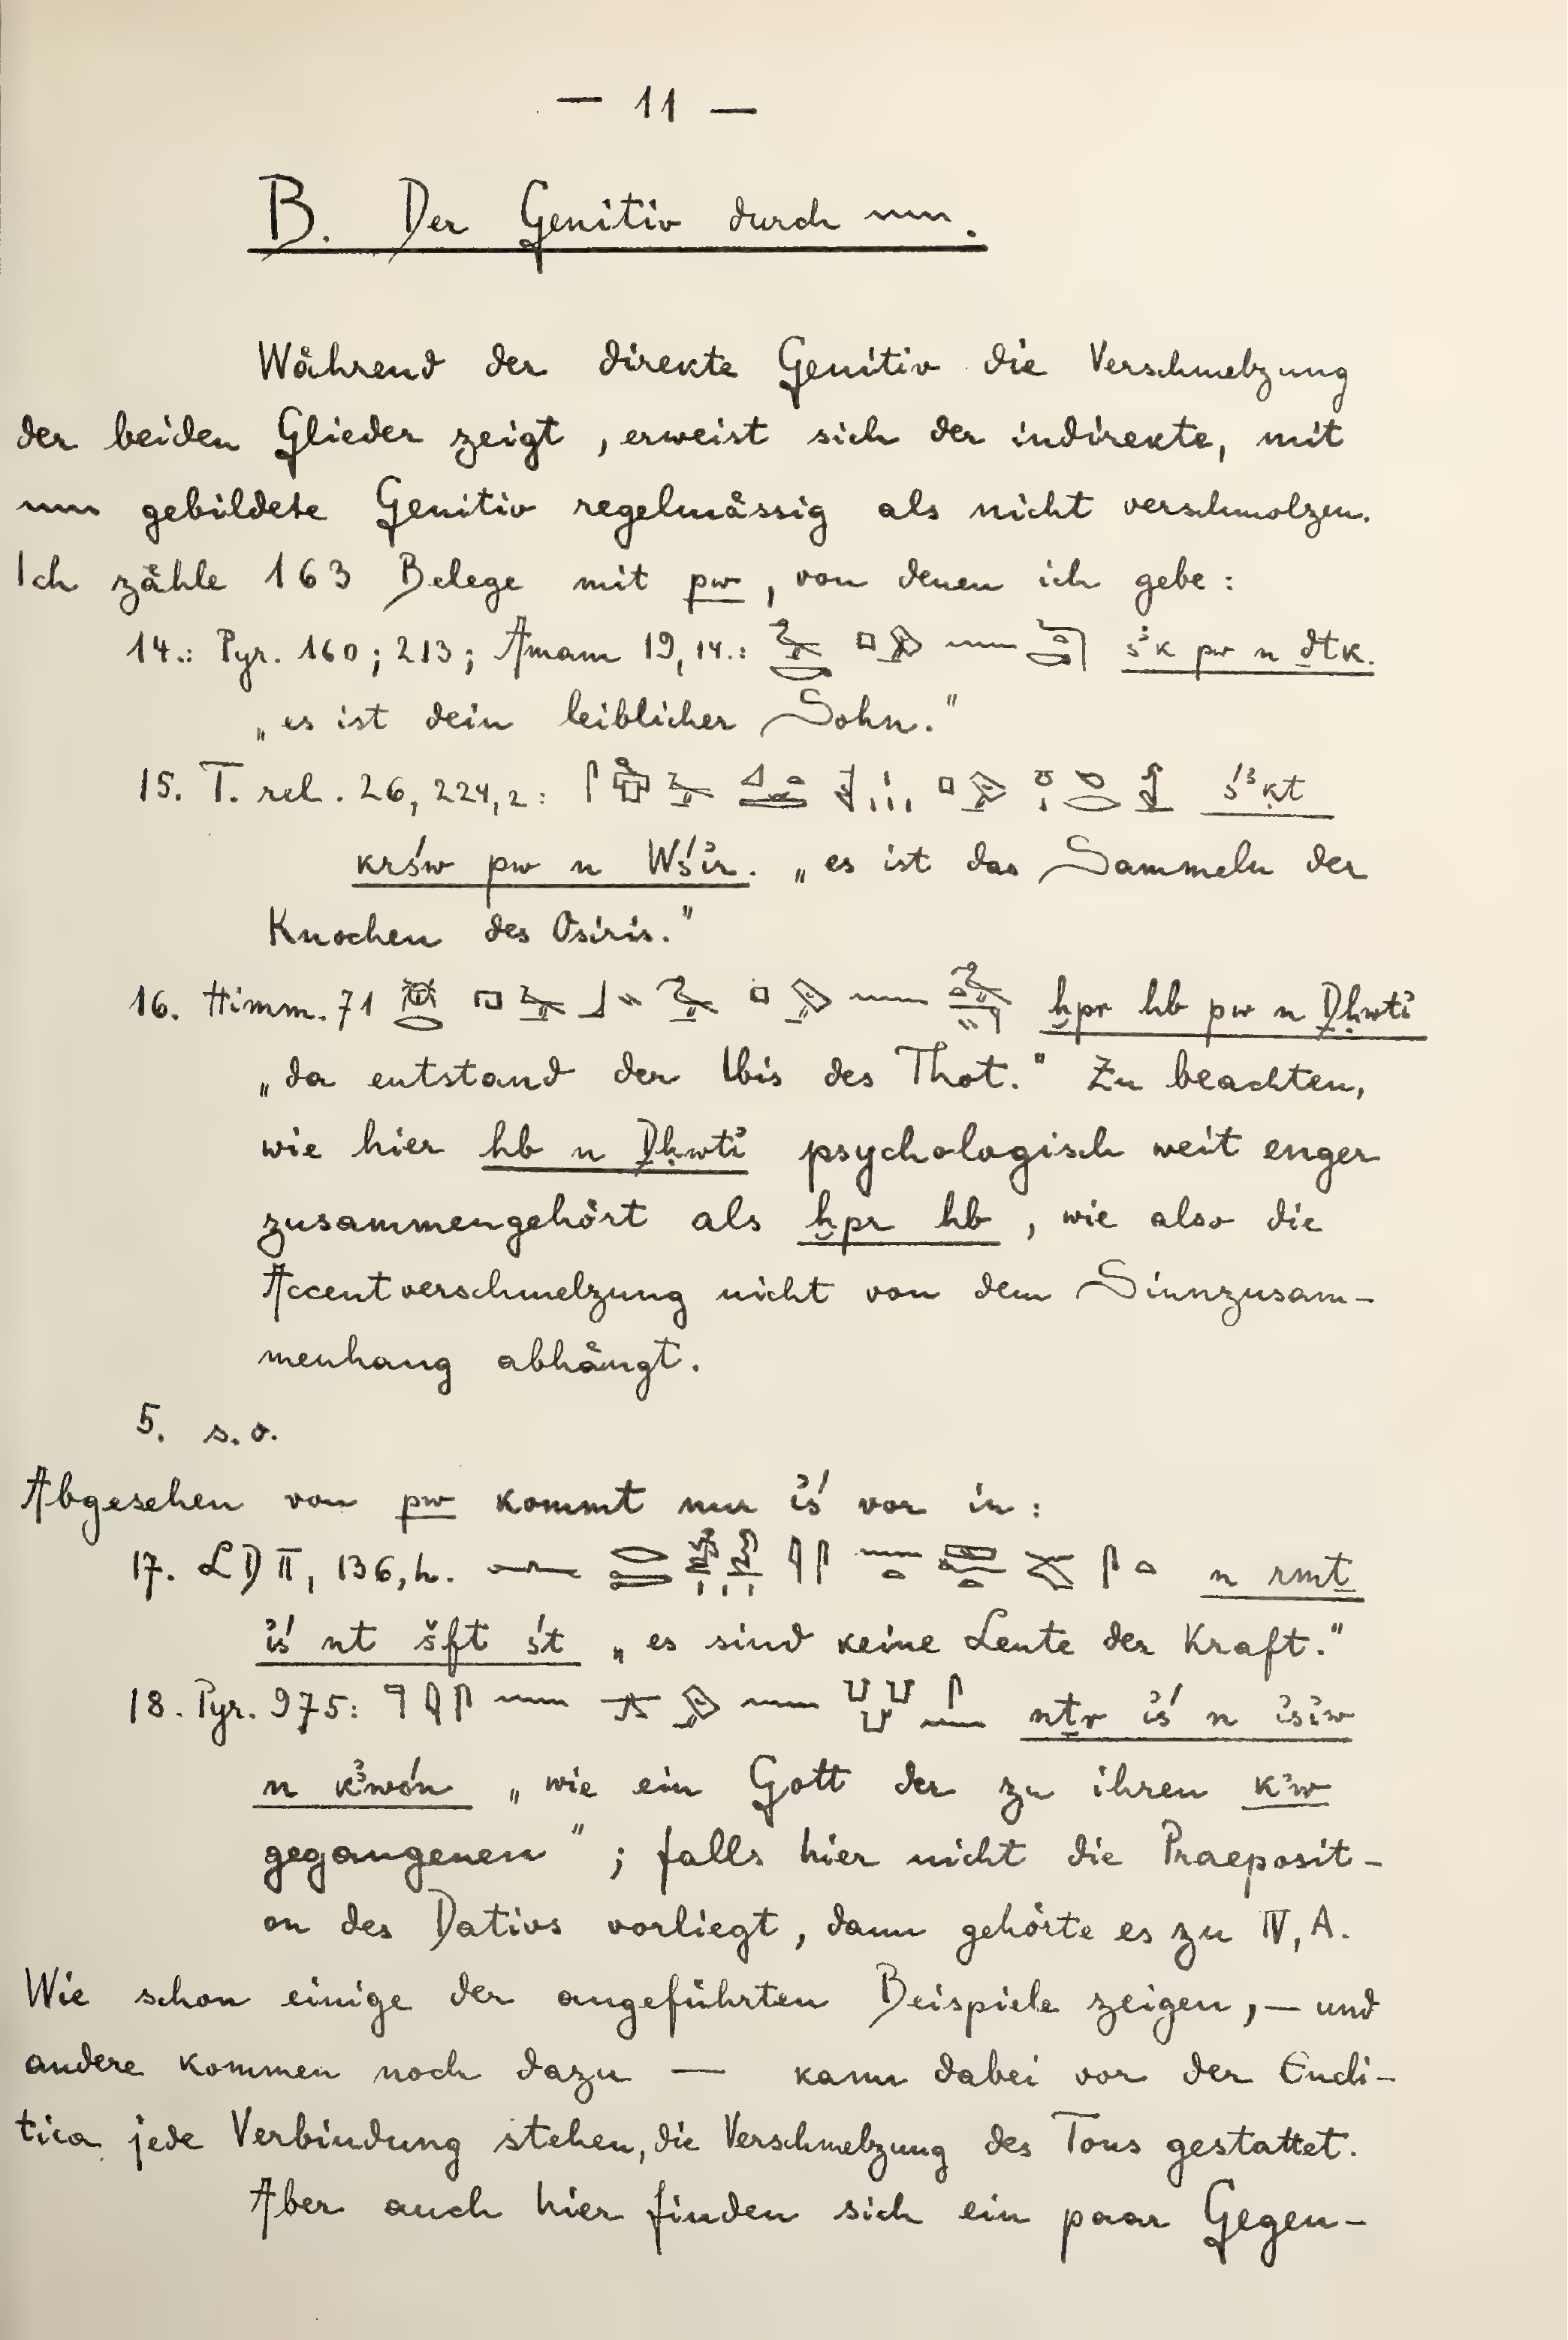 — 11 —
B. Der Genitiv durch 𓈖.
Während der direkte Genitiv die Verschmelzung
der beiden Glieder zeigt, erweist sich der indirekte, mit
𓈖 gebildete Genitiv regelmässig als nicht verschmolzen.
Ich zähle 163 Belege mit pw, von denen ich gebe:
14.: Pyr. 160; 213; Amam 19,14.: pw n ḏtk.
„es ist dein leiblicher Sohn."
15. T. rel. 26, 224,2: śȝḳt
krśw pw n Wśir. „es ist das Sammeln der
Knochen des Osiris."
16. Himm. 71 ḫpr hb pw n Ḏḥwtî
„da entstand der Ibis des Thot." Zu beachten,
wie hier hb n Ḏḥwtî psychologisch weit enger
zusammengehört als ḫpr hb, wie also die
Accentverschmelzung nicht von dem Sinnzusam-
menhang abhängt.
5. s. o.
Abgesehen von pw kommt nur iś vor in:
17. LD II, 136,h. n rmṯ
iś nt šft śt „es sind keine Leute der Kraft."
18. Pyr. 975: nṯr iś n isiw
n kȝwśn „wie ein Gott der zu ihren kȝw
gegangenen"; falls hier nicht die Praeposit-
on des Dativs vorliegt, dann gehörte es zu IV, A.
Wie schon einige der angeführten Beispiele zeigen, — und
andere kommen noch dazu — kann dabei vor der Encli-
tica jede Verbindung stehen, die Verschmelzung des Tons gestattet.
Aber auch hier finden sich ein paar Gegen-